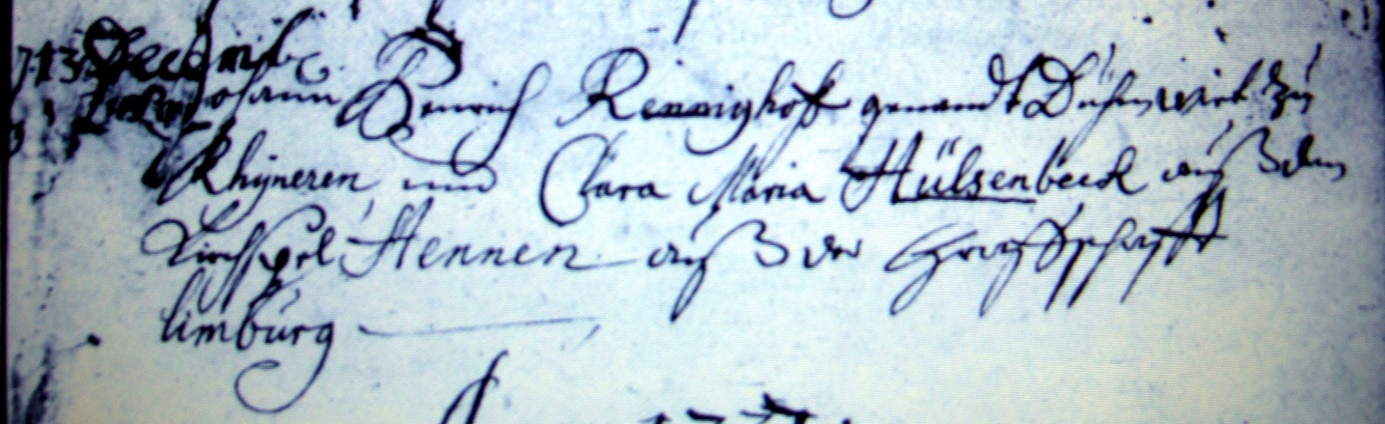 13 Decembr
Johann Henrich Rennighoff genandt Dühmwirt zu
Rhyneren und Clara Maria Hülsenbeck auß dem
Kirchspel Hennen auß der Graffschafft
limburg